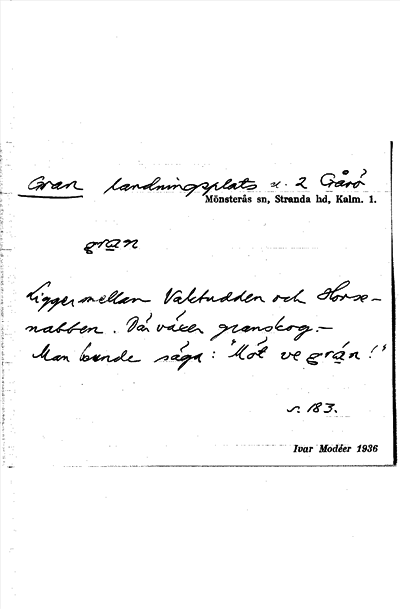 Gran landningsplats nr. 2 Gårö
Mönsterås sn, Stranda hd, Kalm. l.
gran
Ligger mellan Valtudden och Horse-
nabben. Där växer granskog.–
Man kunde säga: "Möt ve gran!"
s. 183.
Ivar Modéer 1936